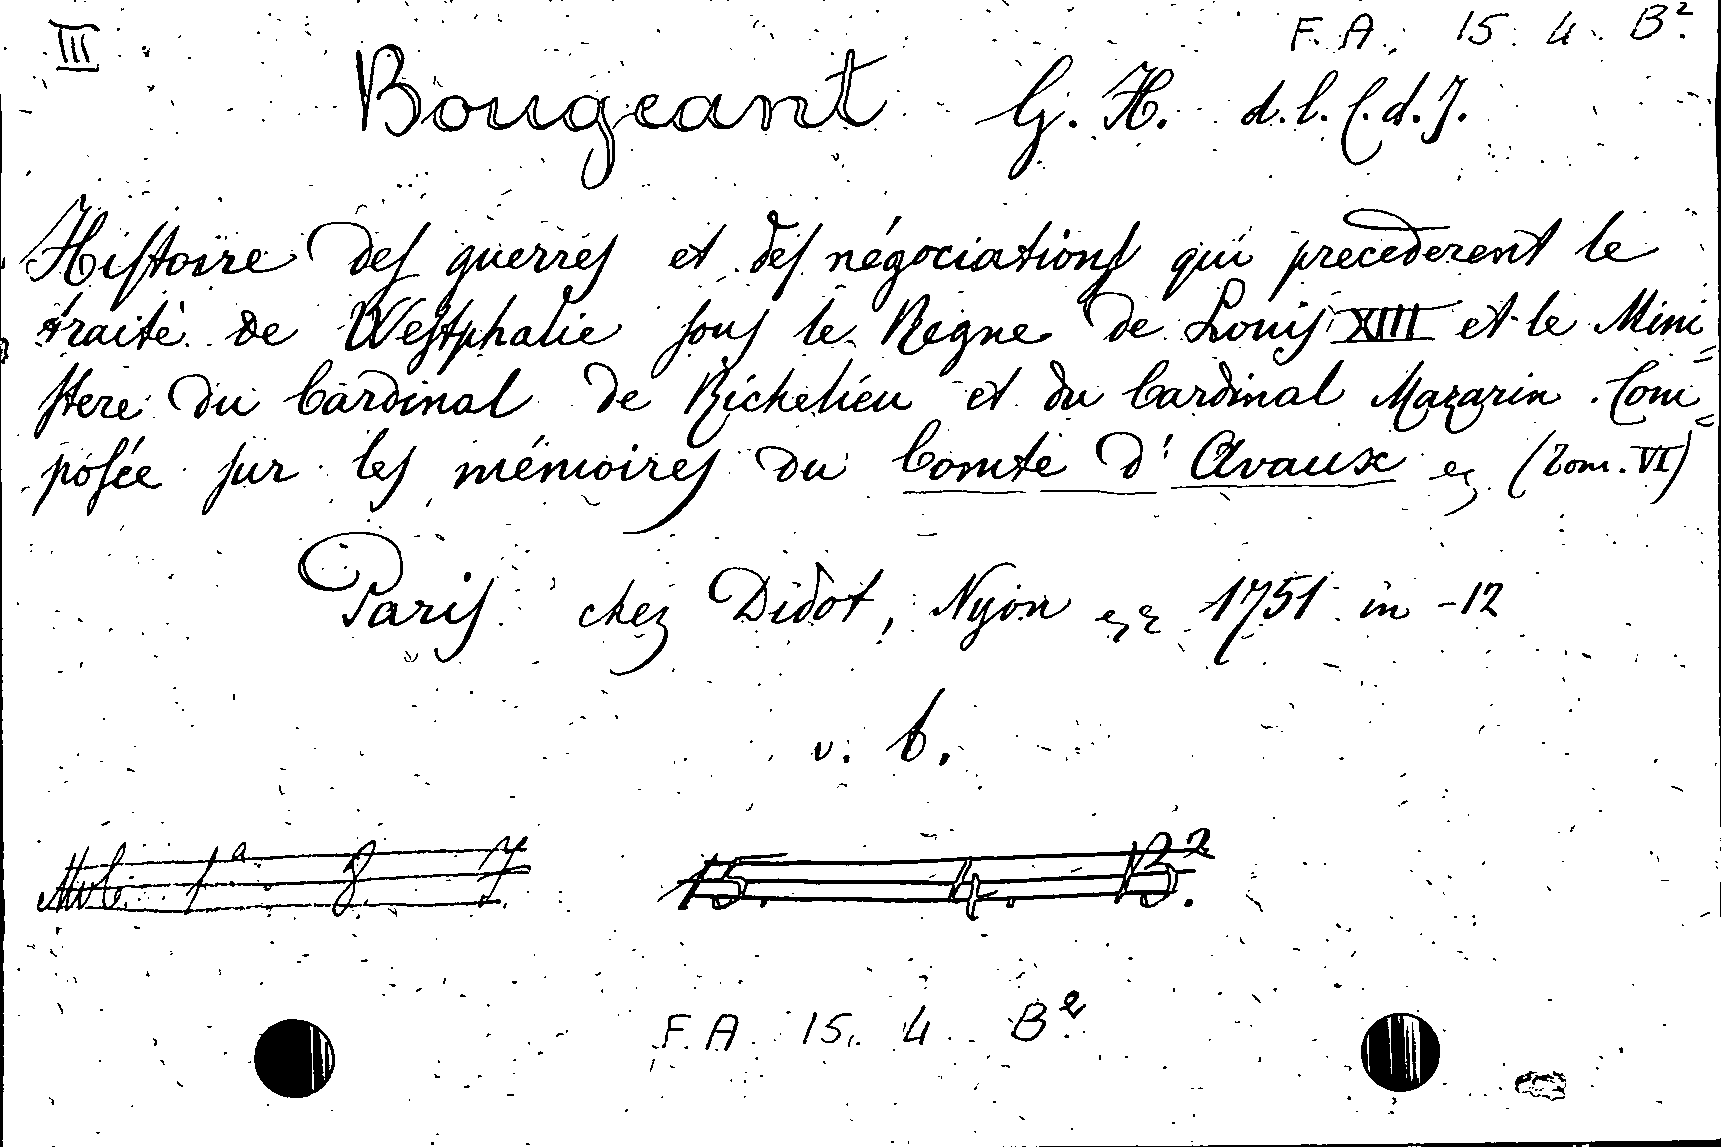 III F. A. 15. 4. B².
Bougeant G. H. d. l. C. d. J.
Histoire des guerres et des négociations qui precederent le
traité de Westphalie sous le Regne de Louis XIII et le Mini=
stere du Cardinal de Richelieu et du Cardinal Mazarin. Com=
posée sur les mémoires du Comte d'Avaux (Tom. VI)
Paris chez Didot, Nyon 1751 in -12
v. b.
1ª. 8. 7. 15. 4. B².
F. A. 15. 4. B²